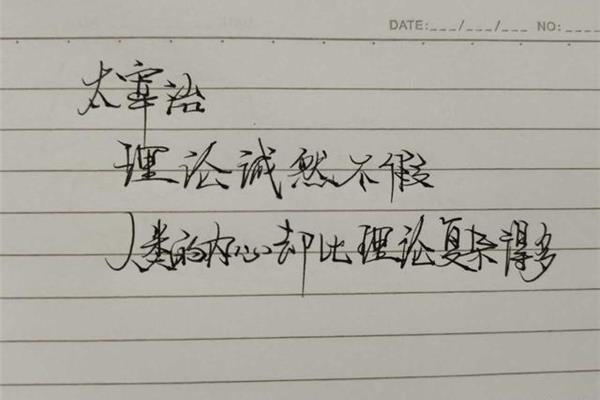 DATE:___/___/___ NO:____
太宰治
理论诚然不假
人类的内心却比理论复杂得多